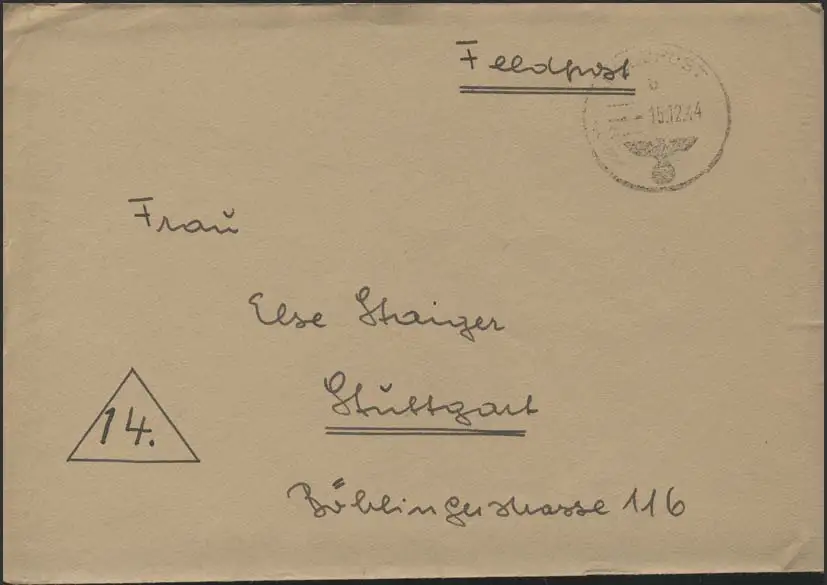 Feldpost
FELDPOST
b
15.12.44
Frau
Else Staiger
Stuttgart
14.
Böblingerstrasse 116